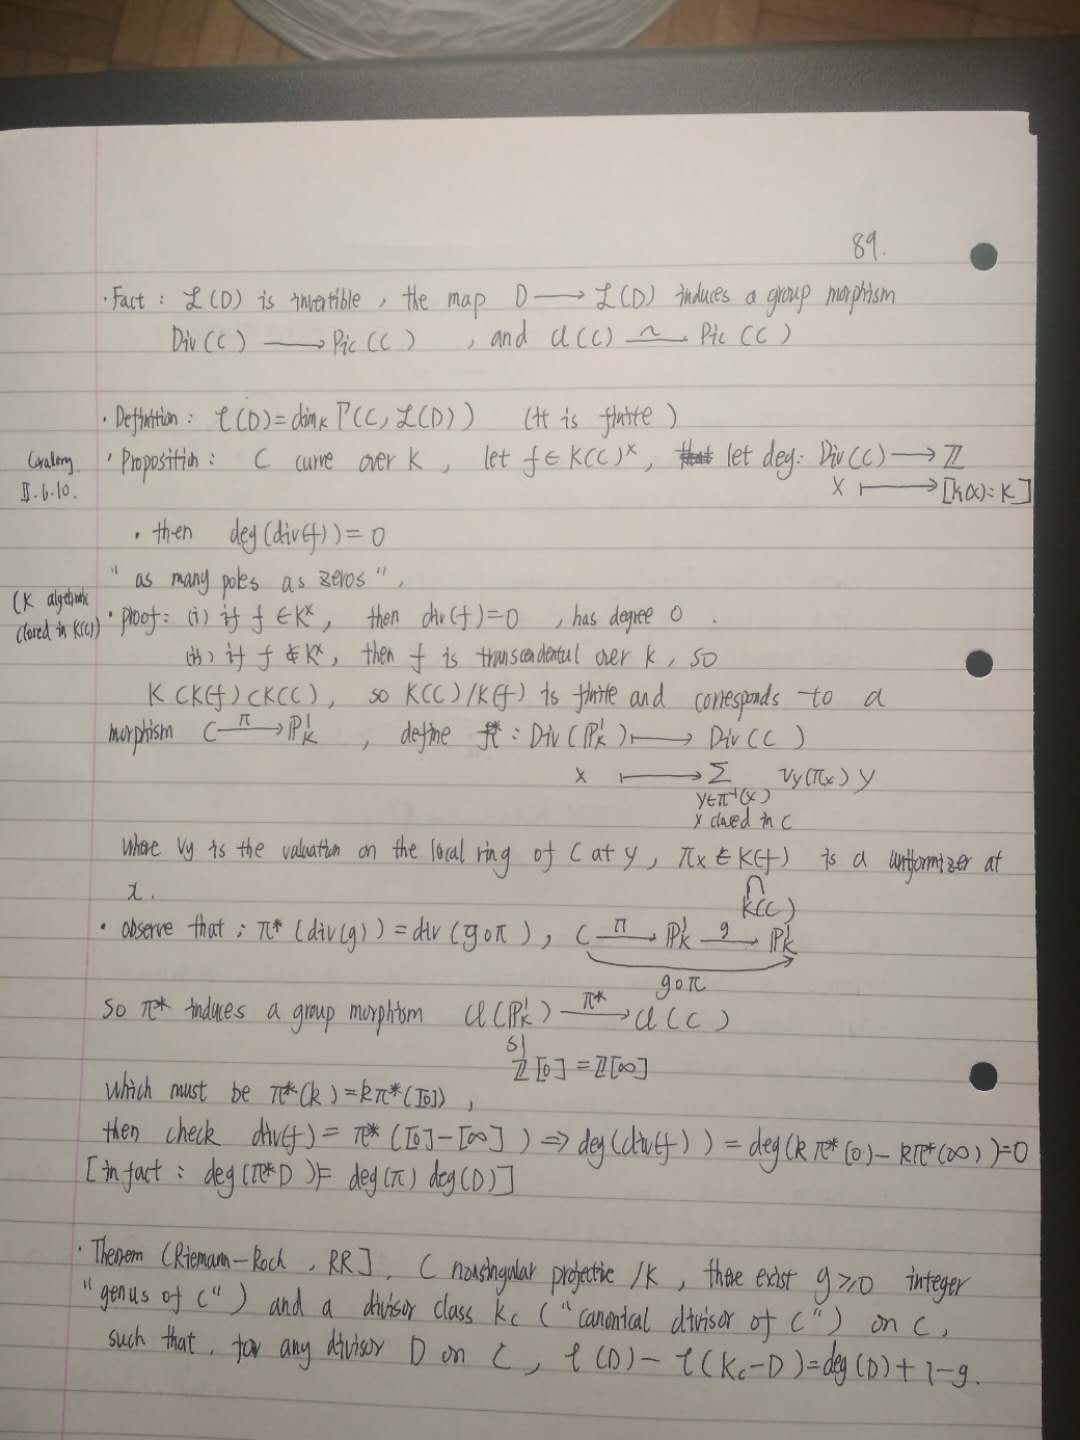 89.
· Fact : ℒ(D) is invertible , the map D ⟶ ℒ(D) induces a group morphism
Div(C) ⟶ Pic(C) , and Cl(C) ⥲ Pic(C)
· Definition : ℓ(D)=dimₖ Γ(C, ℒ(D)) (it is finite)
Corollary
II.6.10.
· Proposition : C curve over k , let f ∈ K(C)ˣ, let deg: Div(C) ⟶ ℤ
x ⟼ [k(x):k]
· then deg(div(f))=0
" as many poles as zeros ".
(k algebraic
closed in K(C))
· proof : (i) if f ∈ kˣ, then div(f)=0 , has degree 0 .
(ii) if f ∉ kˣ, then f is transcendental over k , so
k ⊂ k(f) ⊂ K(C), so K(C)/k(f) is finite and corresponds to a
morphism C —π→ ℙ¹ₖ , define π* : Div(ℙ¹ₖ) ⟼ Div(C)
x ⟼ Σ v_y(π_x) y
y∈π⁻¹(x)
x closed in C
where v_y is the valuation on the local ring of C at y, π_x ∈ k(f) is a uniformizer at
x. ∩
K(C)
· observe that : π*(div(g)) = div(g∘π), C —π→ ℙ¹ₖ —g→ ℙ¹ₖ
g∘π
so π* induces a group morphism Cl(ℙ¹ₖ) —π*→ Cl(C)
≅
ℤ[0] = ℤ[∞]
which must be π*(k)=kπ*([0]),
then check div(f) = π*([0]-[∞]) ⇒ deg(div(f)) = deg(kπ*(0) - kπ*(∞))=0
[in fact : deg(π*D) = deg(π) deg(D)]
· Theorem (Riemann-Roch , RR]. C nonsingular projective /k , there exist g⩾0 integer
"genus of C") and a divisor class K_C ("canonical divisor of C") on C,
such that, for any divisor D on C, ℓ(D) - ℓ(K_C-D)=deg(D)+1-g.